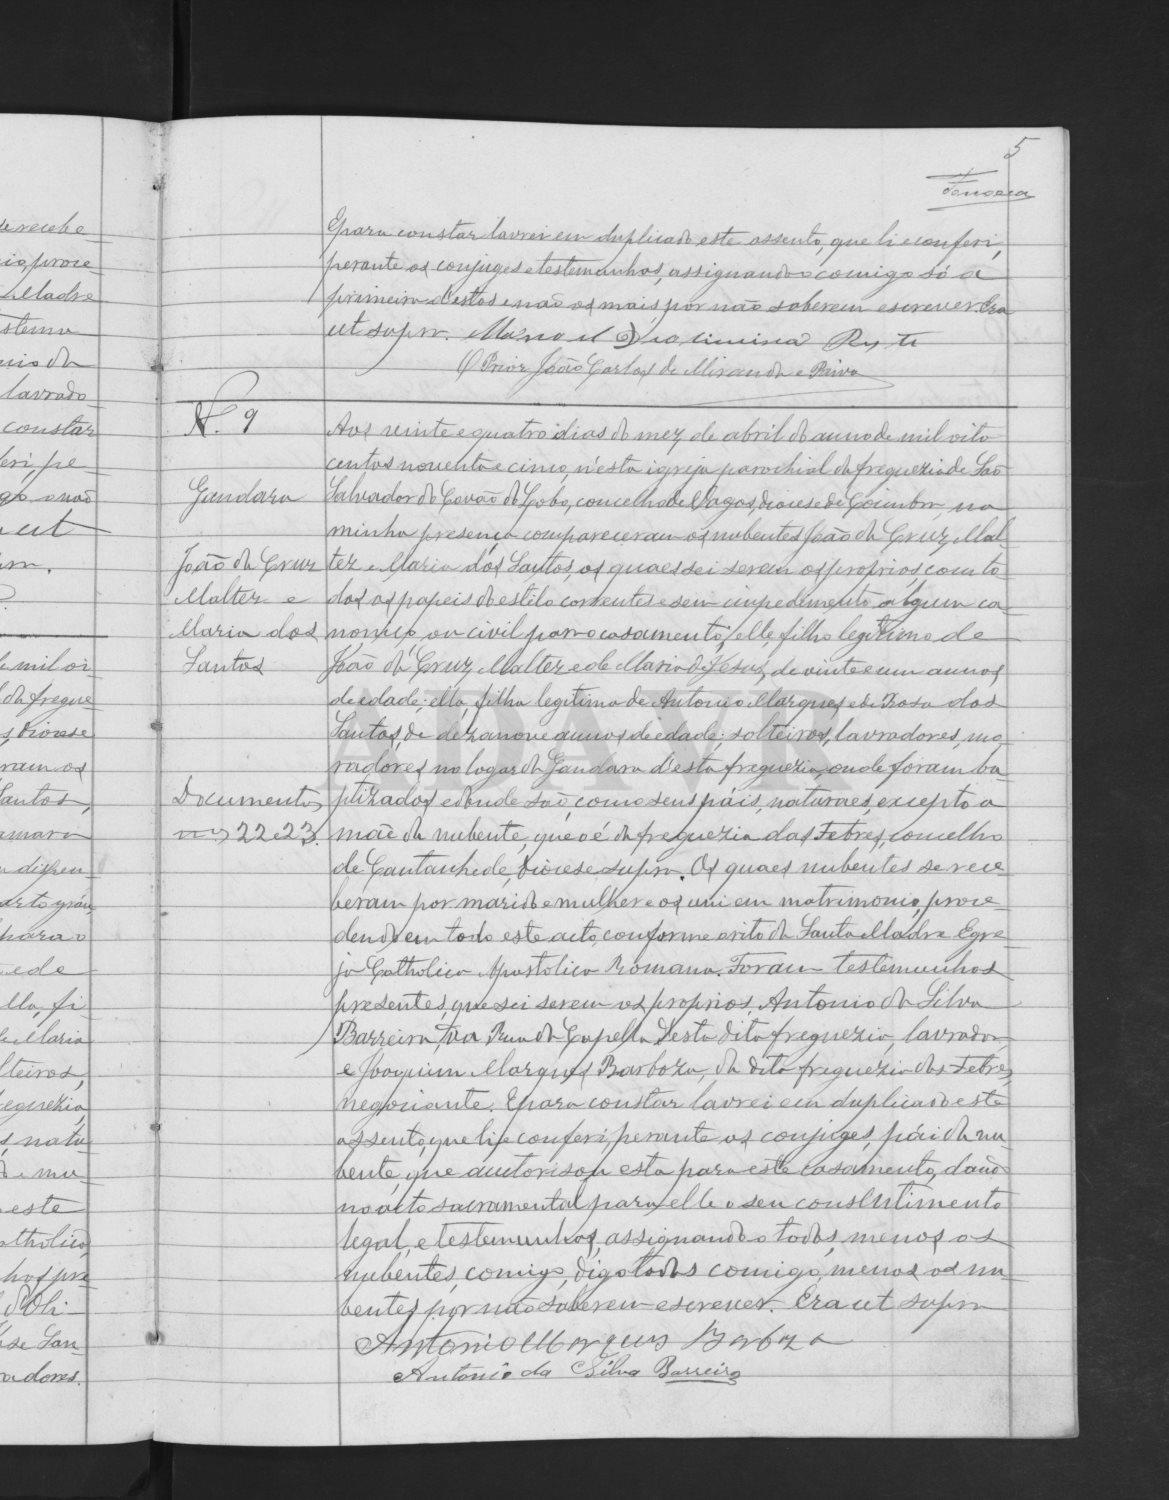 5
Fonseca
E para constar lavrei em duplicado este assento, que li e conferi,
perante os conjuges e testemunhas, assignando-o comigo só a
primeira d'estas e não os mais, por não saberem escrever. Era
ut supra. Manoel
O Prior João Carlos de Miranda e Paiva
N. 9
Gandara
João da Cruz
Malter e
Maria dos
Santos
Documentos
nos 22 e 23.
Aos vinte e quatro dias do mez de abril do anno de mil oito
centos noventa e cinco, n'esta igreja parochial da freguezia de São
Salvador do Covão do Lobo, concelho de Vagos, diocese de Coimbra, na
minha presença compareceram os nubentes João da Cruz Mal-
ter e Maria dos Santos, os quaes sei serem os proprios, com to-
dos os papeis do estilo correntes e sem impedimento algum ca-
nonico, ou civil para o casamento; elle, filho legitimo de
João da Cruz Malter e de Maria de Jesus, de vinte e um annos
de edade; ella, filha legitima de Antonio Marques e de Rosa dos
Santos, de dezanove annos de edade; solteiros, lavradores, mo-
radores no logar da Gandara d'esta freguezia, onde foram ba-
ptizados e donde são, como seus páis, naturaes, excepto a
mãe da nubente, que o é da freguezia das Febres, concelho
de Cantanhede, diocese supra. Os quaes nubentes se rece-
beram por marido e mulher e os uni em matrimonio, proce-
dendo em todo este acto, conforme o rito da Santa Madre Egre-
ja Catholica Apostolica Romana. Foram testemunhas
presentes, que sei serem os proprios, Antonio da Silva
Barreira, da Rua da Capella d'esta dita freguezia, lavrador
e Joaquim Marques Barboza, da dita freguezia das Febres,
negociante. E para constar lavrei em duplicado este
assento, que li e conferi, perante os conjuges, pái da nu-
bente, que auctorisou esta para este casamento, dando
no acto sacramental para elle o seu consentimento
legal, e testemunhas, assignando-o todos, menos os
nubentes, comigo, digo todos comigo, menos os nu-
bentes, por não saberem escrever. Era ut supra
Antonio Marques Barboza
Antonio da Silva Barreira
ADAVR
se recebe-
cio, proce-
Madre
lavrado-
constar
feri, pe-
e não
ut
de mil oi-
da fregue-
diocese
ram os
Santos,
dispen-
arto gráu,
para o
ella, fi-
Maria
lteiros,
freguezia,
natu-
este
catholico,
has pre-
radores.